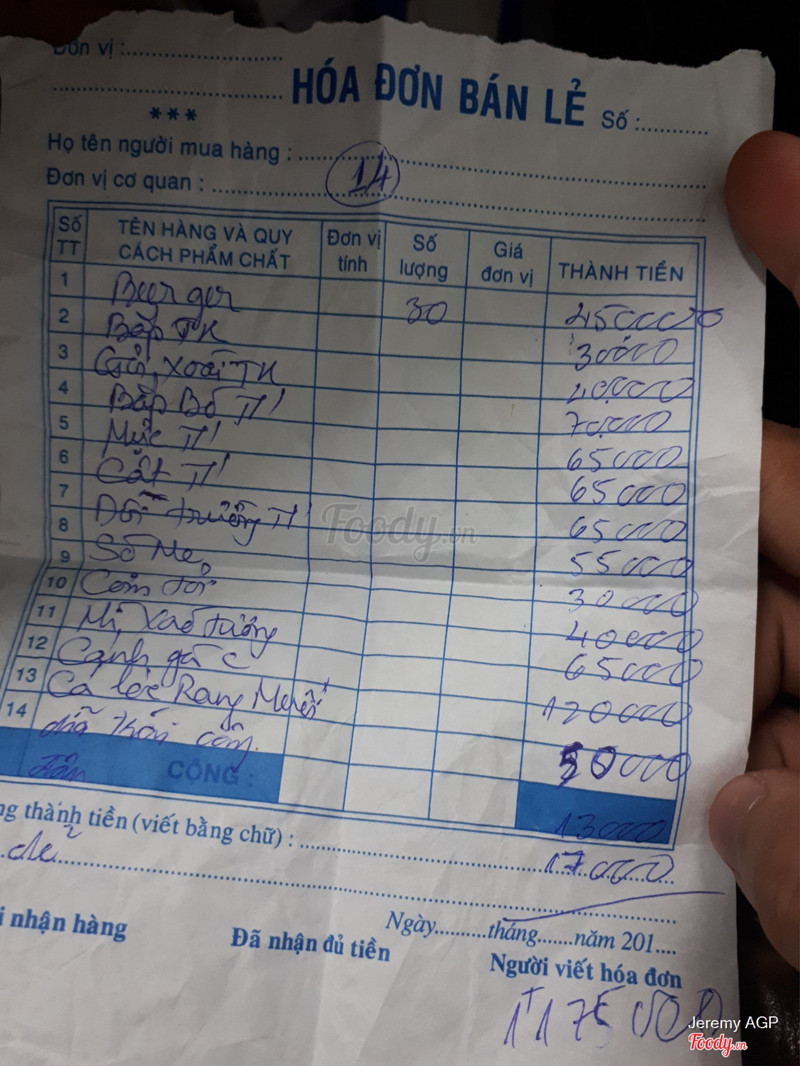 Đơn vị :
HÓA ĐƠN BÁN LẺ Số :
***
Họ tên người mua hàng :
Đơn vị cơ quan : 14
Số TT TÊN HÀNG VÀ QUY CÁCH PHẨM CHẤT Đơn vị tính Số lượng Giá đơn vị THÀNH TIỀN
1 Burger 30 450000
2 Bắp TK 30000
3 Xoài TK 40000
4 Bắp Bò TI 70,000
5 Mực TI 65000
6 TI 65000
7 trường TI 65000
8 Sò Me 55000
9 Cơm tỏi 30000
10 Mì Xào tương 40000
11 Canh gà c 65000
12 Cá lóc Rang Muối 120000
13 50000
14
CỘNG : 13000
ng thành tiền (viết bằng chữ) : 17000
Ngày tháng năm 201
i nhận hàng Đã nhận đủ tiền Người viết hóa đơn
Foody.vn
Jeremy AGP
Foody.vn